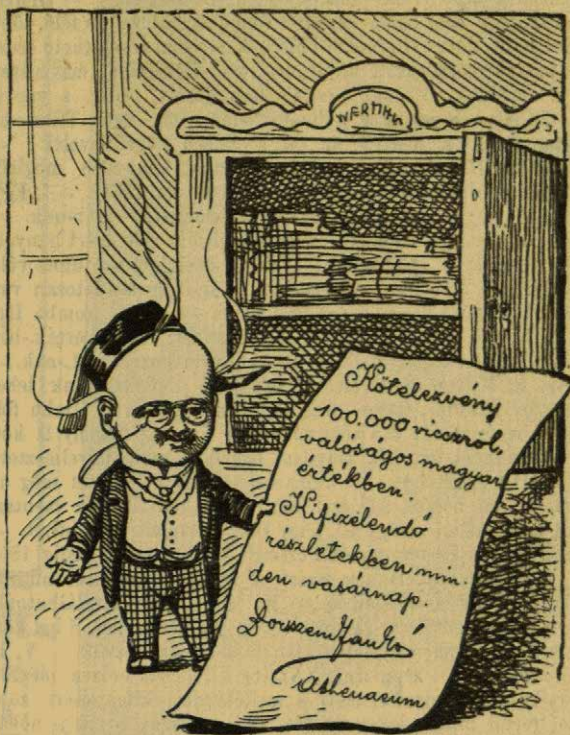 WERTHH
Kötelezvény
100.000 viczről,
valóságos magyar
értékben.
Kifizetendő
részletekben min-
den vasárnap.
Borsszem Jankó
Athenaeum